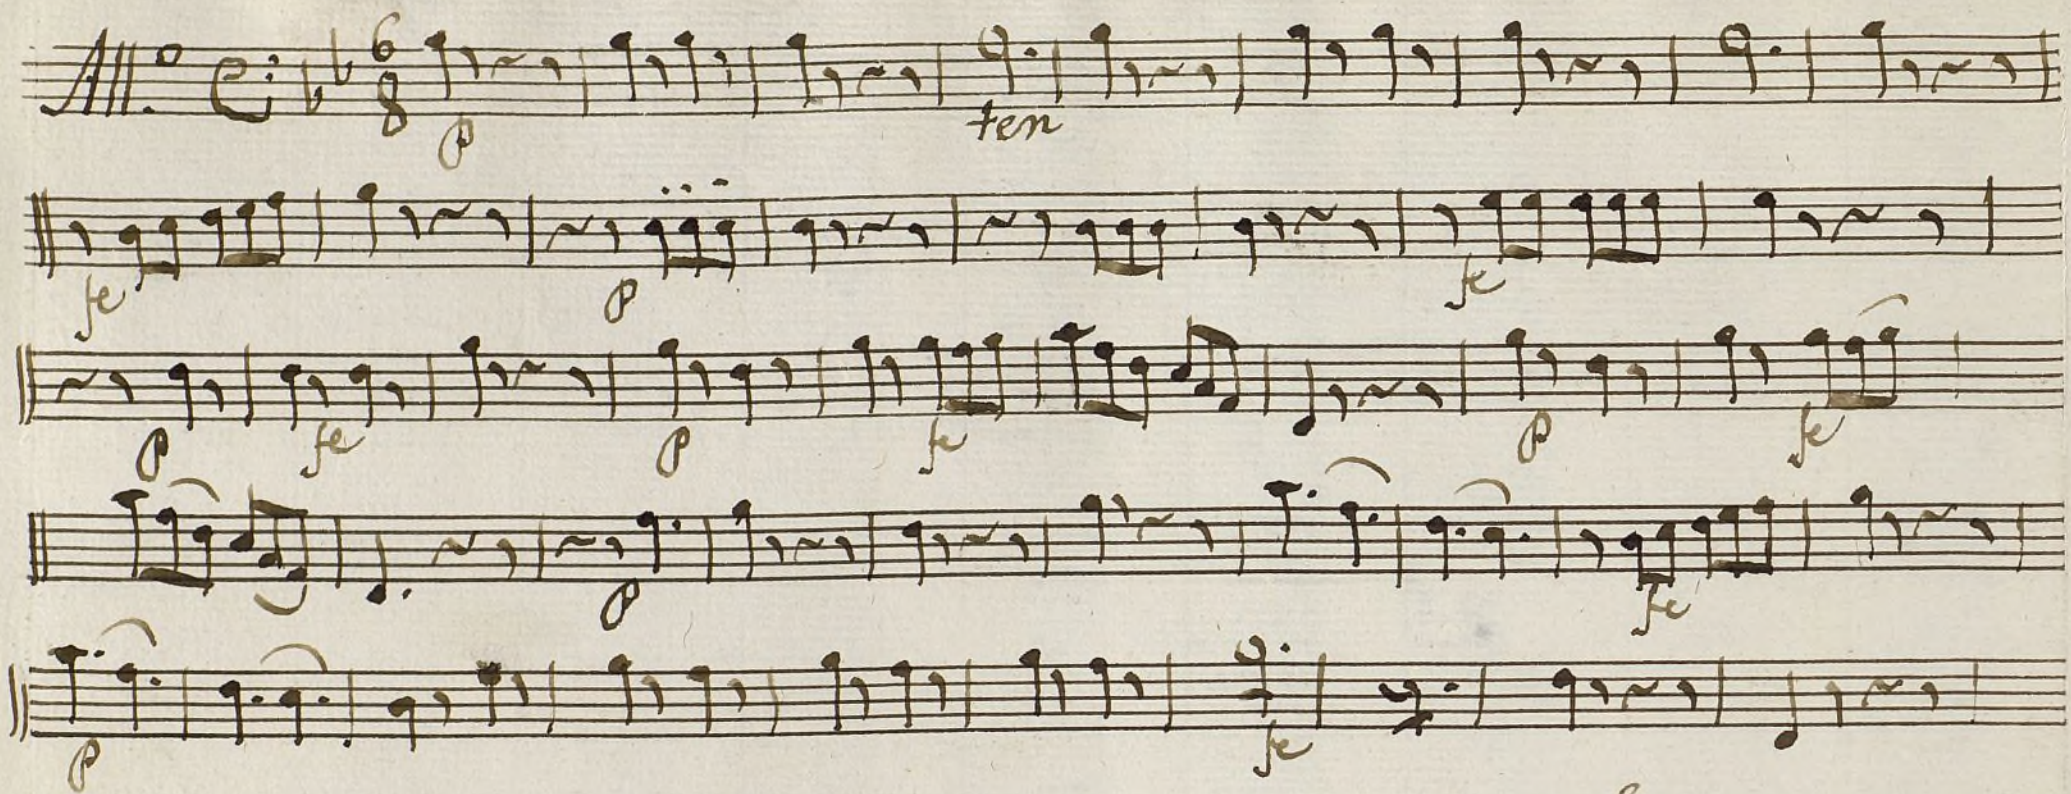 All.o 6 8
p ten
fe p fe
p fe p fe p fe
p fe
p fe